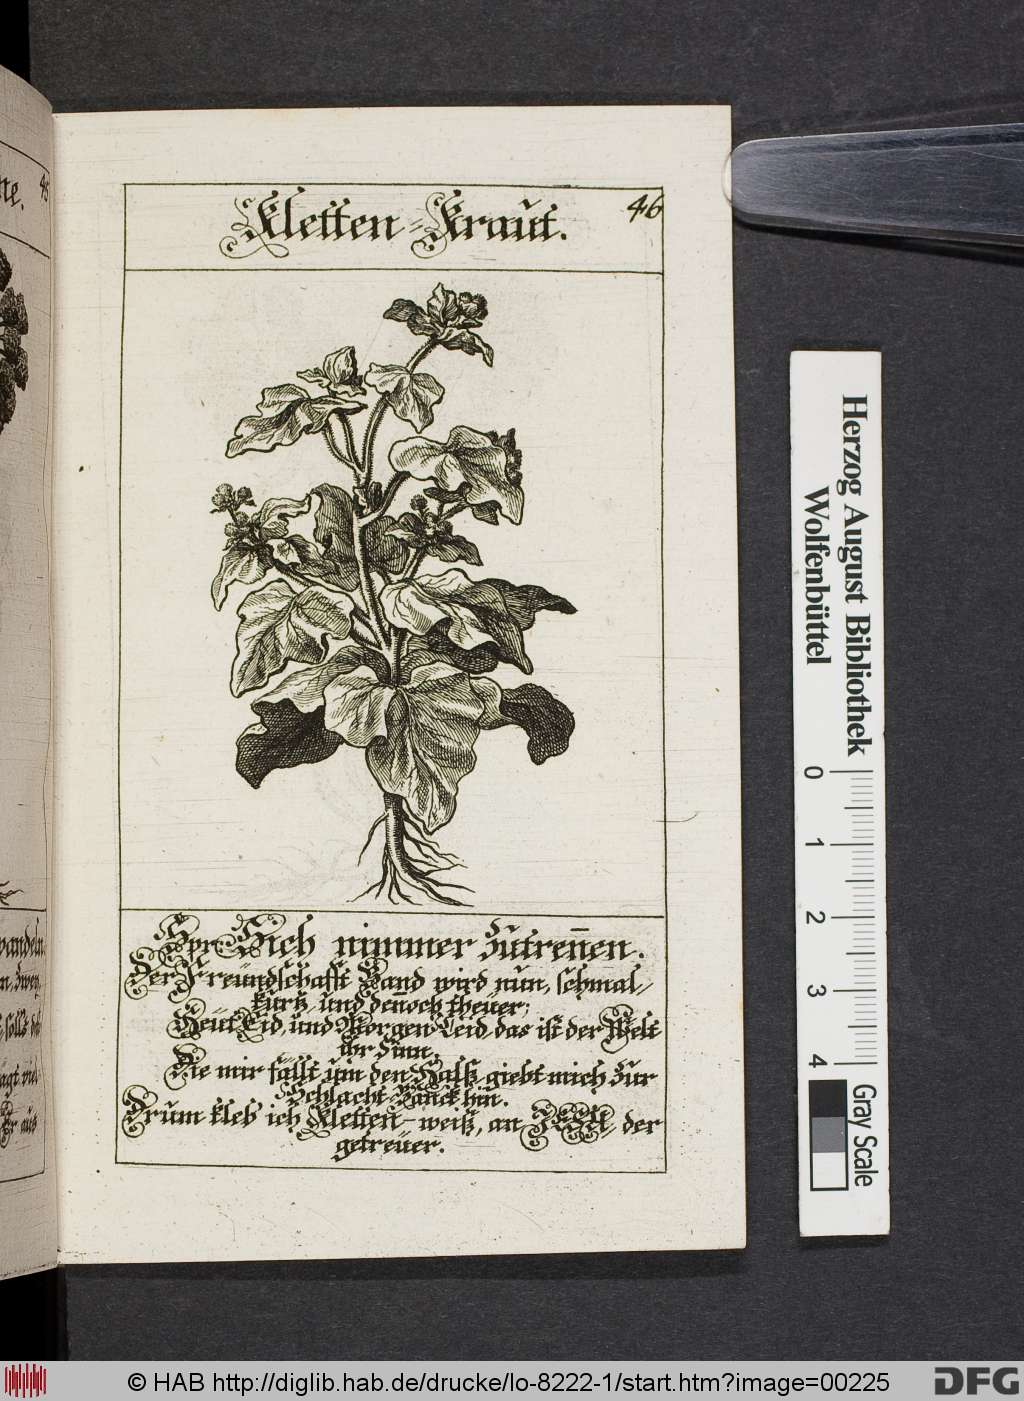 ne. 45
Kletten-Kraut.
46
wandeln
Spr. Sich nimmer zutreñen.
Der Freundschafft Band wird nun, schmal,
kurtz, und deñoch theüer;
Heüt Eid, und Morgen Leid, das ist der Welt
ihr Sinn.
Die mir fällt um den Halß, giebt mich zur
Schlacht-Banck hin.
Drum kleb' ich Kletten-weiß, an der
getreüer.
Herzog August Bibliothek
Wolfenbüttel
0 1 2 3 4
Gray Scale
© HAB http://diglib.hab.de/drucke/lo-8222-1/start.htm?image=00225
DFG